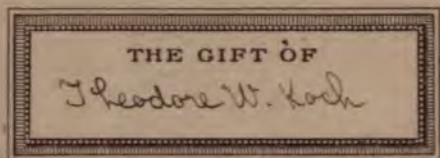 THE GIFT OF
Theodore W. Koch